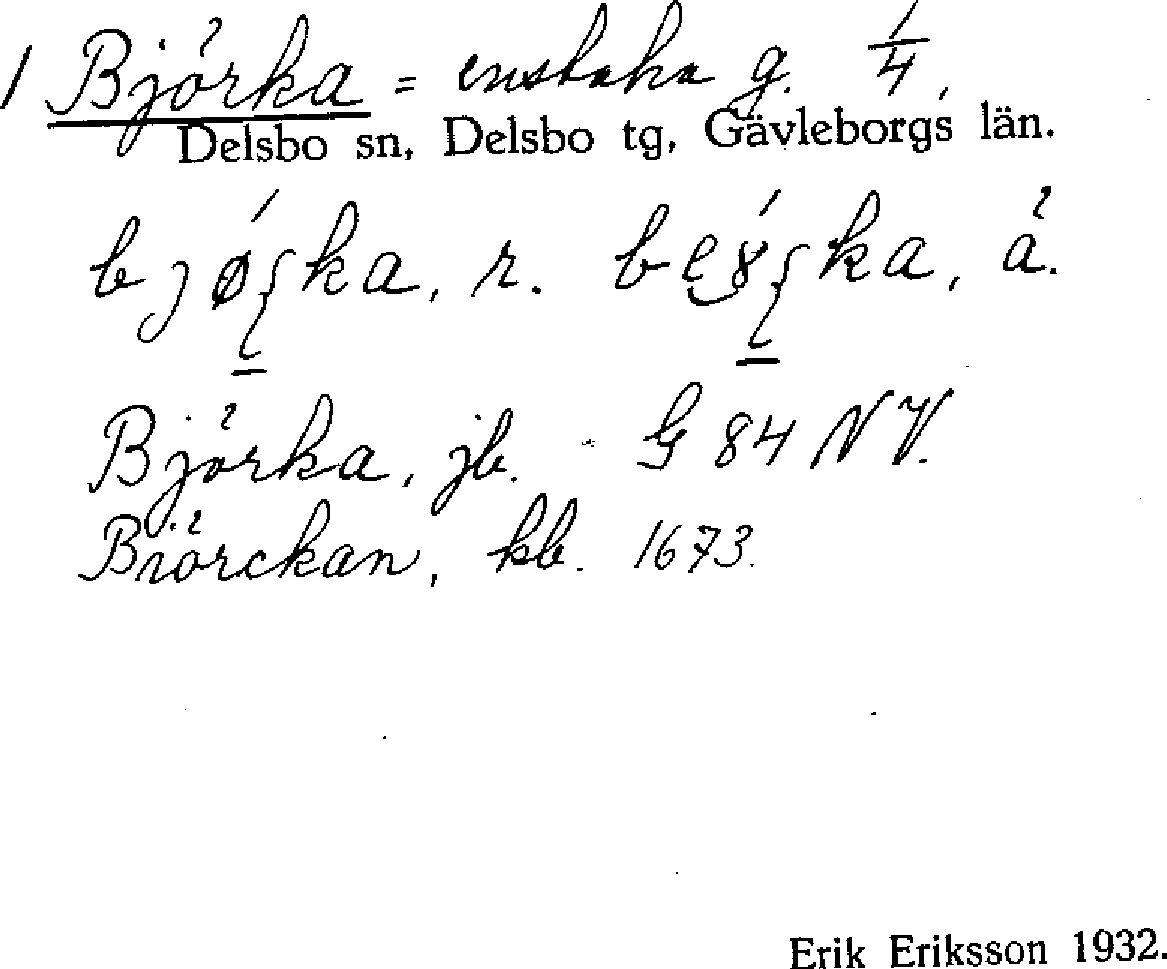 1 Björka = enstaka g. 1/4,
Delsbo sn, Delsbo tg, Gävleborgs län.
r. å.
Björka, jb. G 84 NV.
Biörckan, kb. 1673.
Erik Eriksson 1932.